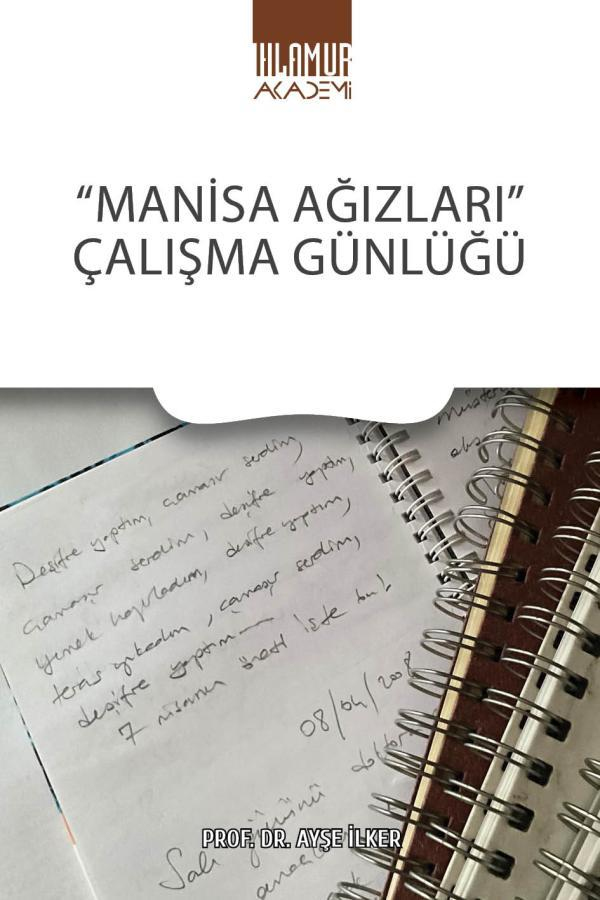 IHLAMUR
AKADEMİ
“MANİSA AĞIZLARI”
ÇALIŞMA GÜNLÜĞÜ
Müşteri
Deşifre yaptım, çamaşır serdim,
çamaşır serdim, deşifre yaptım,
yemek hazırladım, deşifre yaptım,
teras yıkadım, çamaşır serdim,
deşifre yaptım
7 nisanın özeti işte bu!
08/04/2008
Salı gününü doktor
PROF. DR. AYŞE İLKER